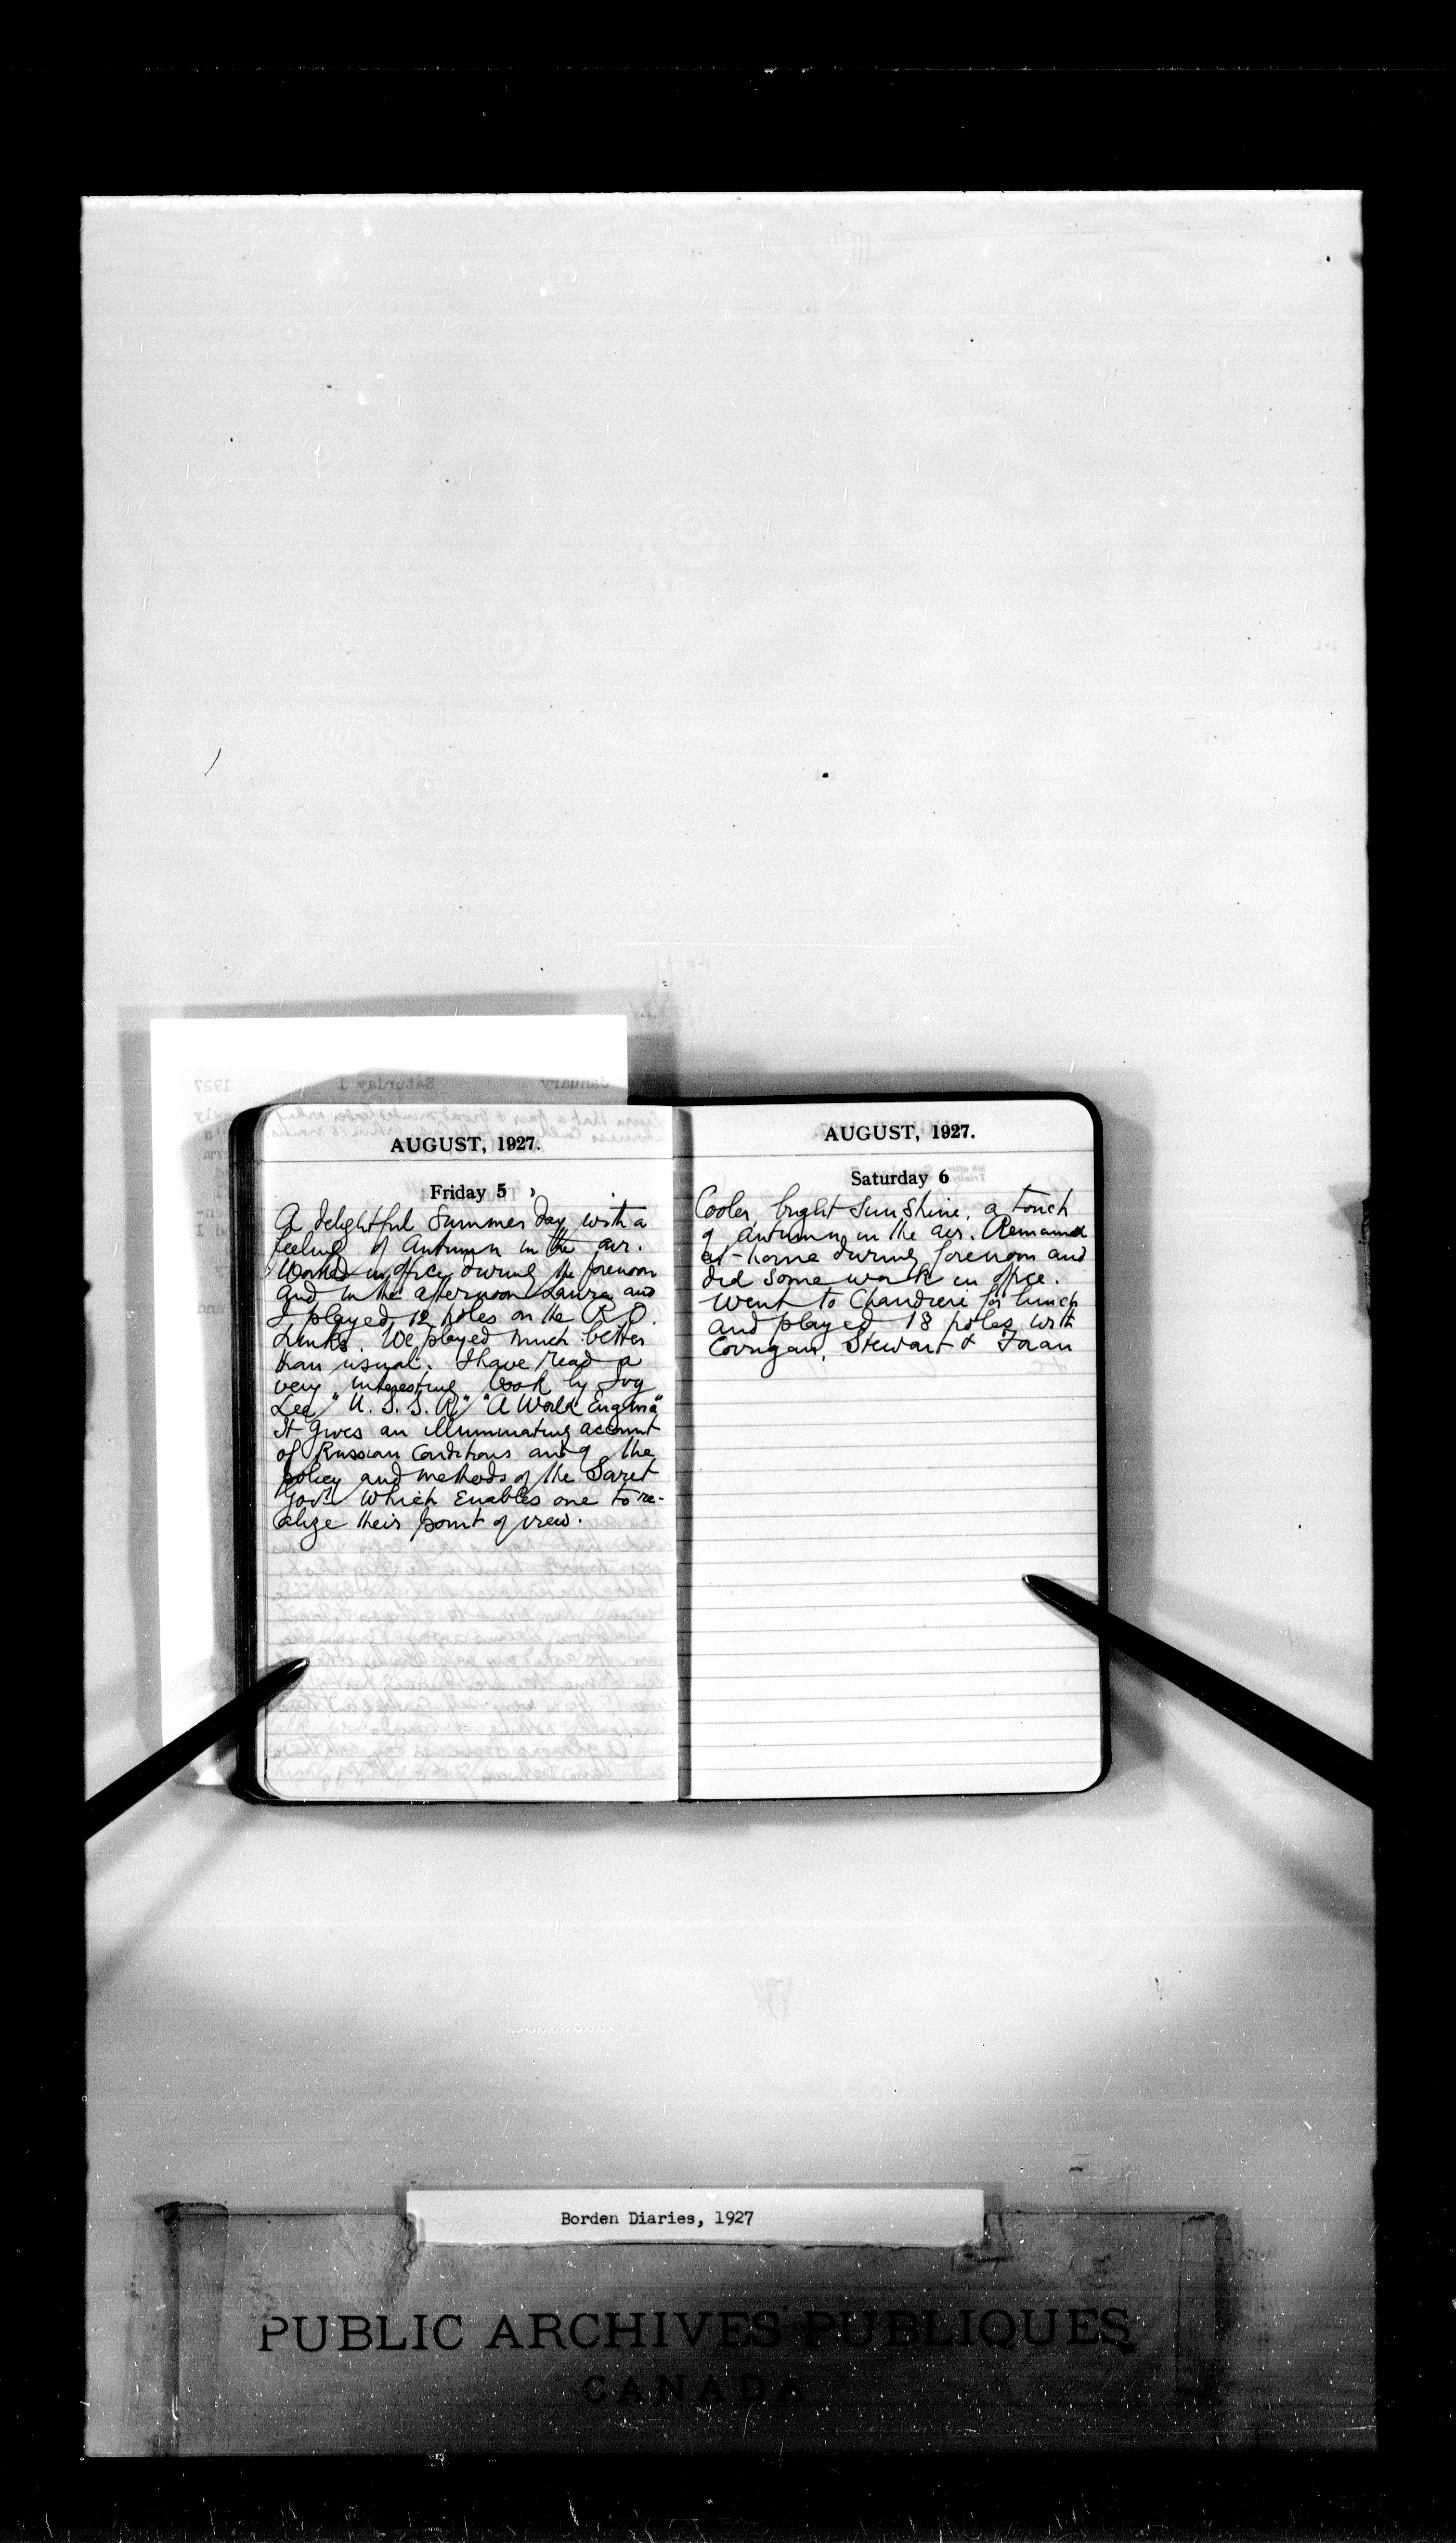 AUGUST, 1927.
Friday 5
A delightful Summer day with a
feeling of Autumn in the air.
Worked in office during the forenoon
and in the afternoon Laura and
I played 12 holes on the R.O.
Links. We played much better
than usual. I have read a
very interesting book by Ivy
Lee "U.S.S.R" "A World Enigma"
It gives an illuminating account
of Russian conditions and of the
policy and methods of the Soviet
Govt which enables one to re-
alize their point of view.
AUGUST, 1927.
Saturday 6
Cooler, bright sunshine, a touch
of autumn in the air. Remained
at home during forenoon and
did some work in office.
Went to Chaudiere for lunch
and played 18 holes with
Stewart & Foran
Borden Diaries, 1927
PUBLIC ARCHIVES PUBLIQUES
CANADA